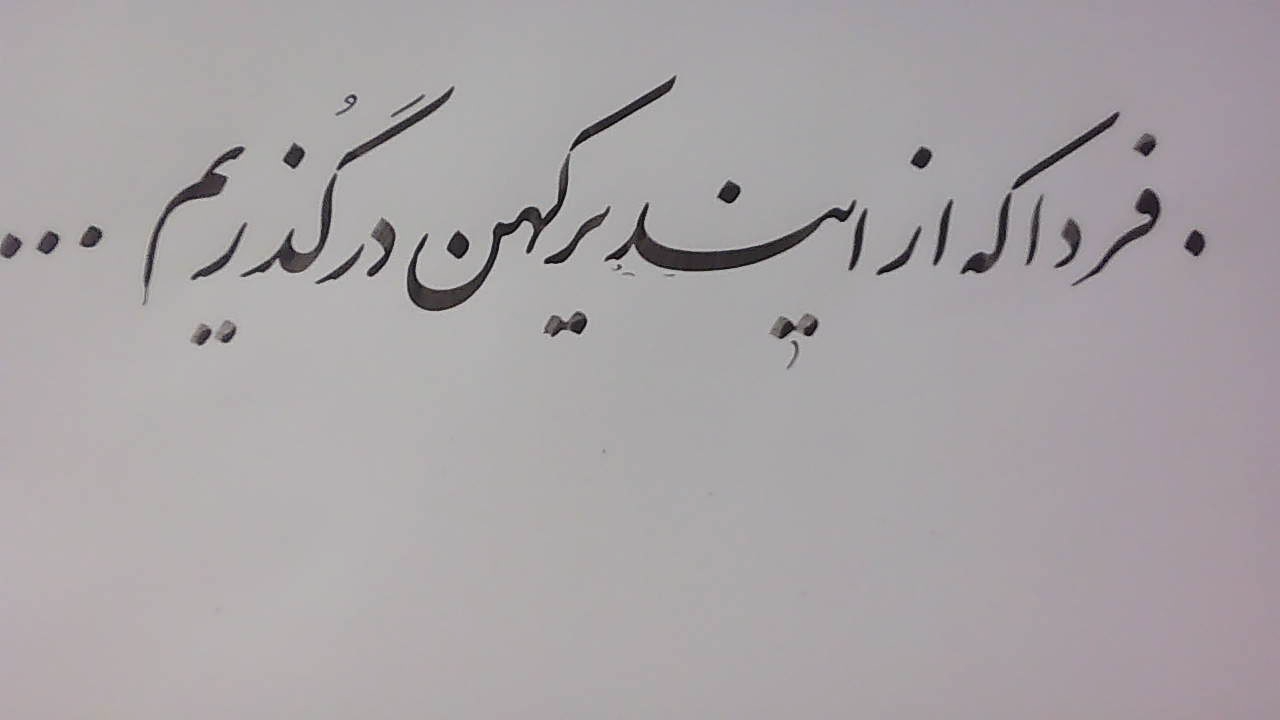 . فردا که از این دیر کهن درگُذریم ...